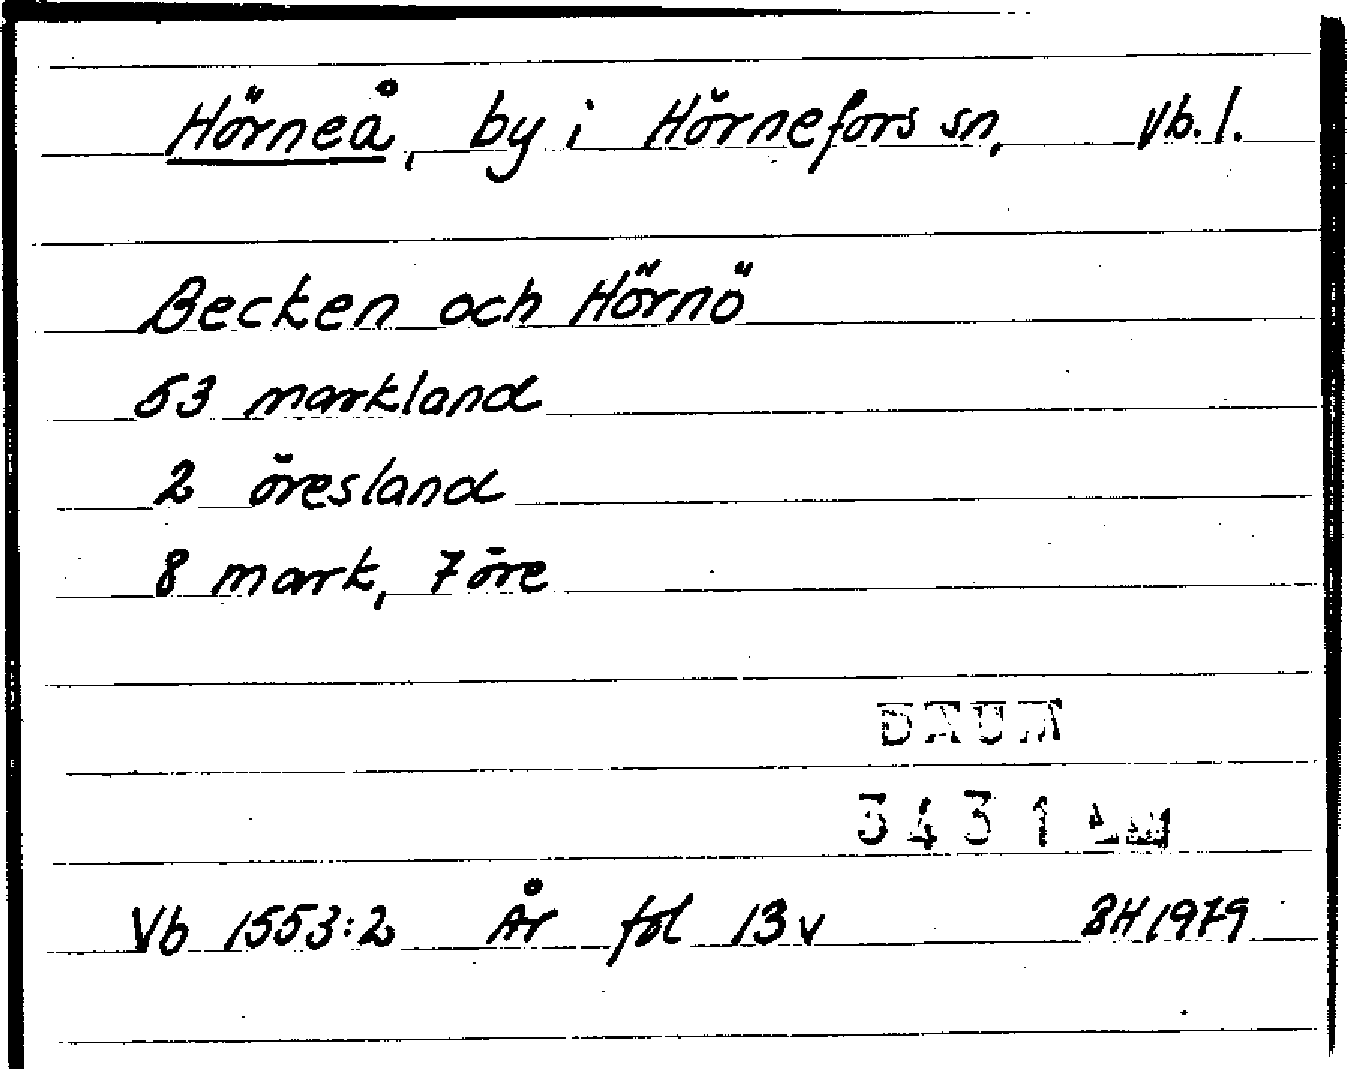 Hörneå, by i Hörnefors sn, Vb. l.
Becken och Hörnö
53 markland
2 öresland
8 mark, 7 öre
DAUM
3431
Vb 1553:2 År fol 13v BH 1979